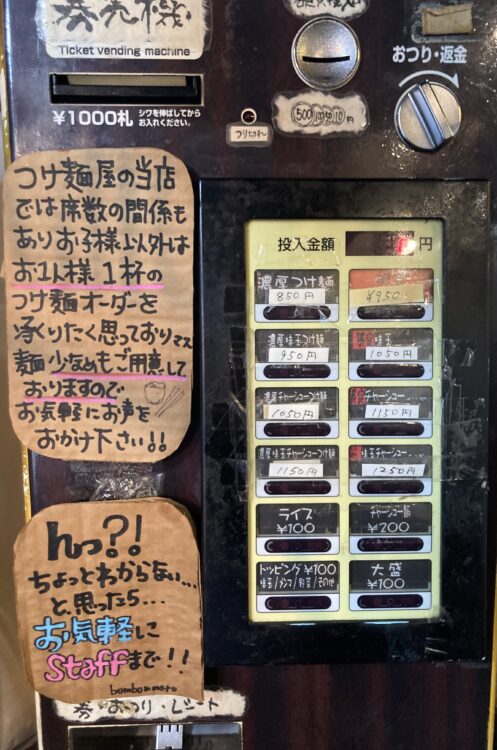 券売機
Ticket vending machine
¥1000札 シワを伸ばしてからお入れください。
つり切れ
500 100 50 10 円
おつり・返金
つけ麺屋の当店
では席数の関係も
ありお子様以外は
お1人様1杯の
つけ麺オーダーを
承りたく思っております
麺少なめもご用意して
おりますので
お気軽にお声を
おかけ下さい!!
投入金額 円
濃厚つけ麺
850円
¥950
濃厚味玉つけ麺
950円
味玉
1050円
濃厚チャーシューつけ麺
1050円
チャーシュー
1150円
濃厚味玉チャーシューつけ麺
1150円
味玉チャーシュー
1250円
ライス
¥100
チャーシュー飯
¥200
トッピング¥100
味玉/メンマ/野菜/その他
大盛
¥100
んっ?!
ちょっとわからない...
と思ったら...
お気軽に
Staffまで!!
券・おつり・レシート